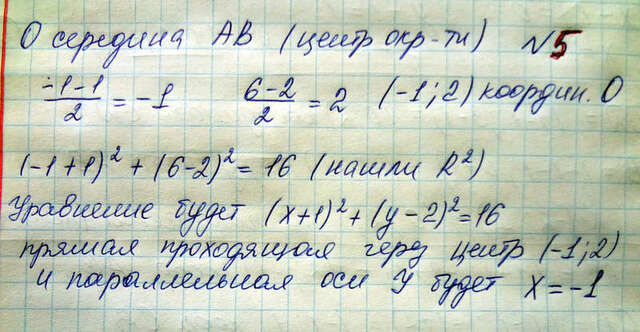 О середина АВ (центр окр-ти) №5
-1-1/2 = -1 6-2/2 = 2 (-1; 2) координ. О
(-1+1)² + (6-2)² = 16 (нашли R²)
Уравнение будет (x+1)² + (y-2)² = 16
прямая проходящая через центр (-1; 2)
и параллельная оси У будет x = -1